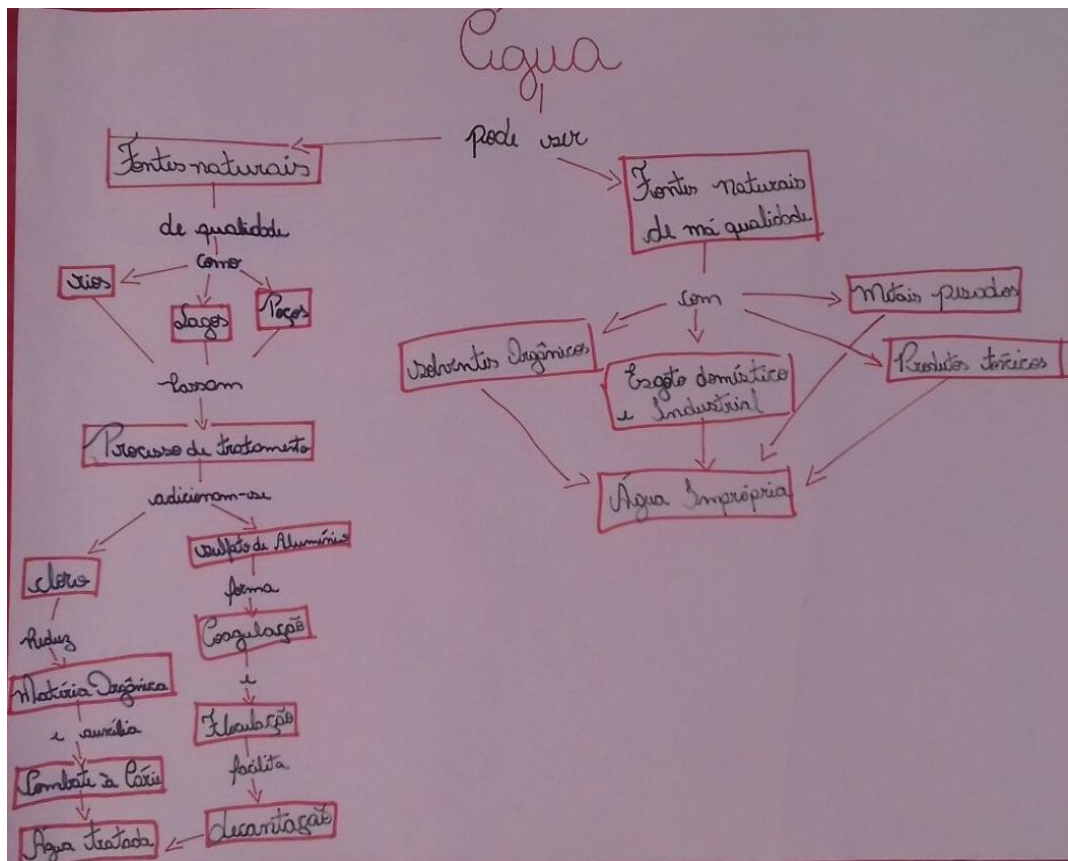 Água
pode ser
Fontes naturais
de qualidade
como
rios
Lagos
Poços
Passam
Processo de tratamento
adicionam-se
cloro
Reduz
Matéria Orgânica
e auxília
Combate à Cárie
Água tratada
sulfato de Alumínio
forma
Coagulação
e
Floculação
facilita
decantação
Fontes naturais
de má qualidade
com
solventes Orgânicos
Esgoto doméstico
e Industrial
Metais pesados
Produtos tóxicos
Água Imprópria